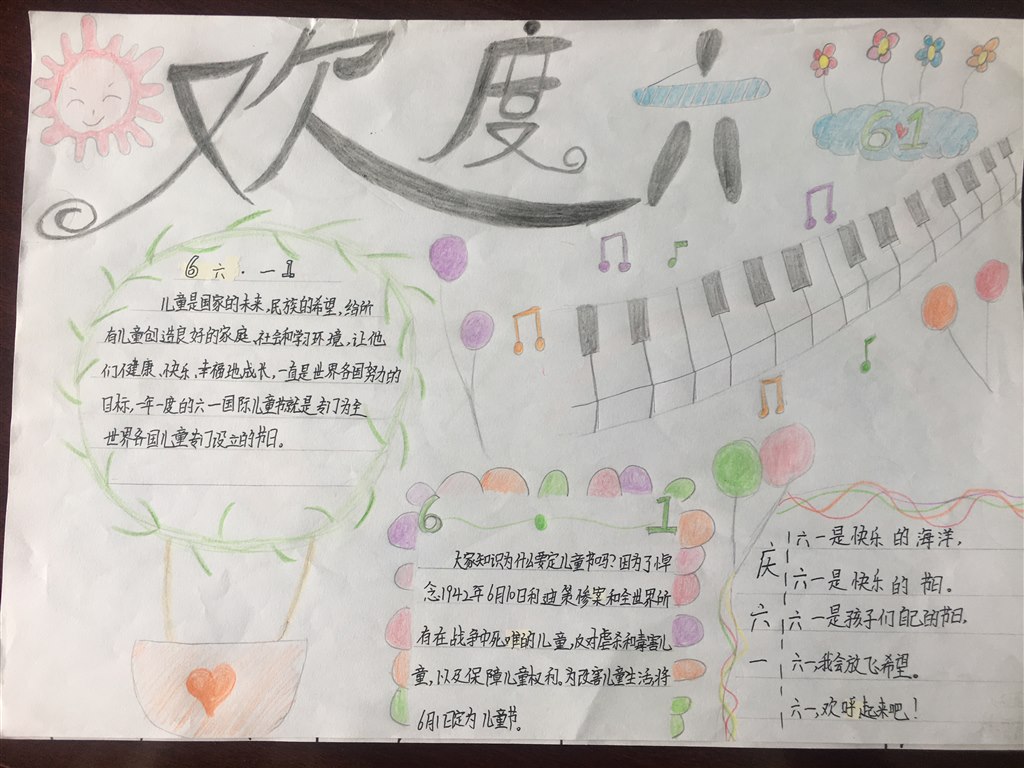 欢度六
6 1
6 六·一 1
儿童是国家的未来,民族的希望,给所
有儿童创造良好的家庭、社会和学习环境,让他
们健康、快乐、幸福地成长,一直是世界各国努力的
目标,一年一度的六一国际儿童节就是专门为全
世界各国儿童专门设立的节日。
6 1
大家知识为什么要定儿童节吗?因为了悼
念1942年6月10日利迪策惨案和全世界所
有在战争中死难的儿童,反对虐杀和毒害儿
童,以及保障儿童权利。为改善儿童生活,将
6月1日定为儿童节。
庆六一
六一是快乐的海洋,
六一是快乐的节日。
六一是孩子们自己的节日,
六一,我会放飞希望。
六一,欢呼起来吧!